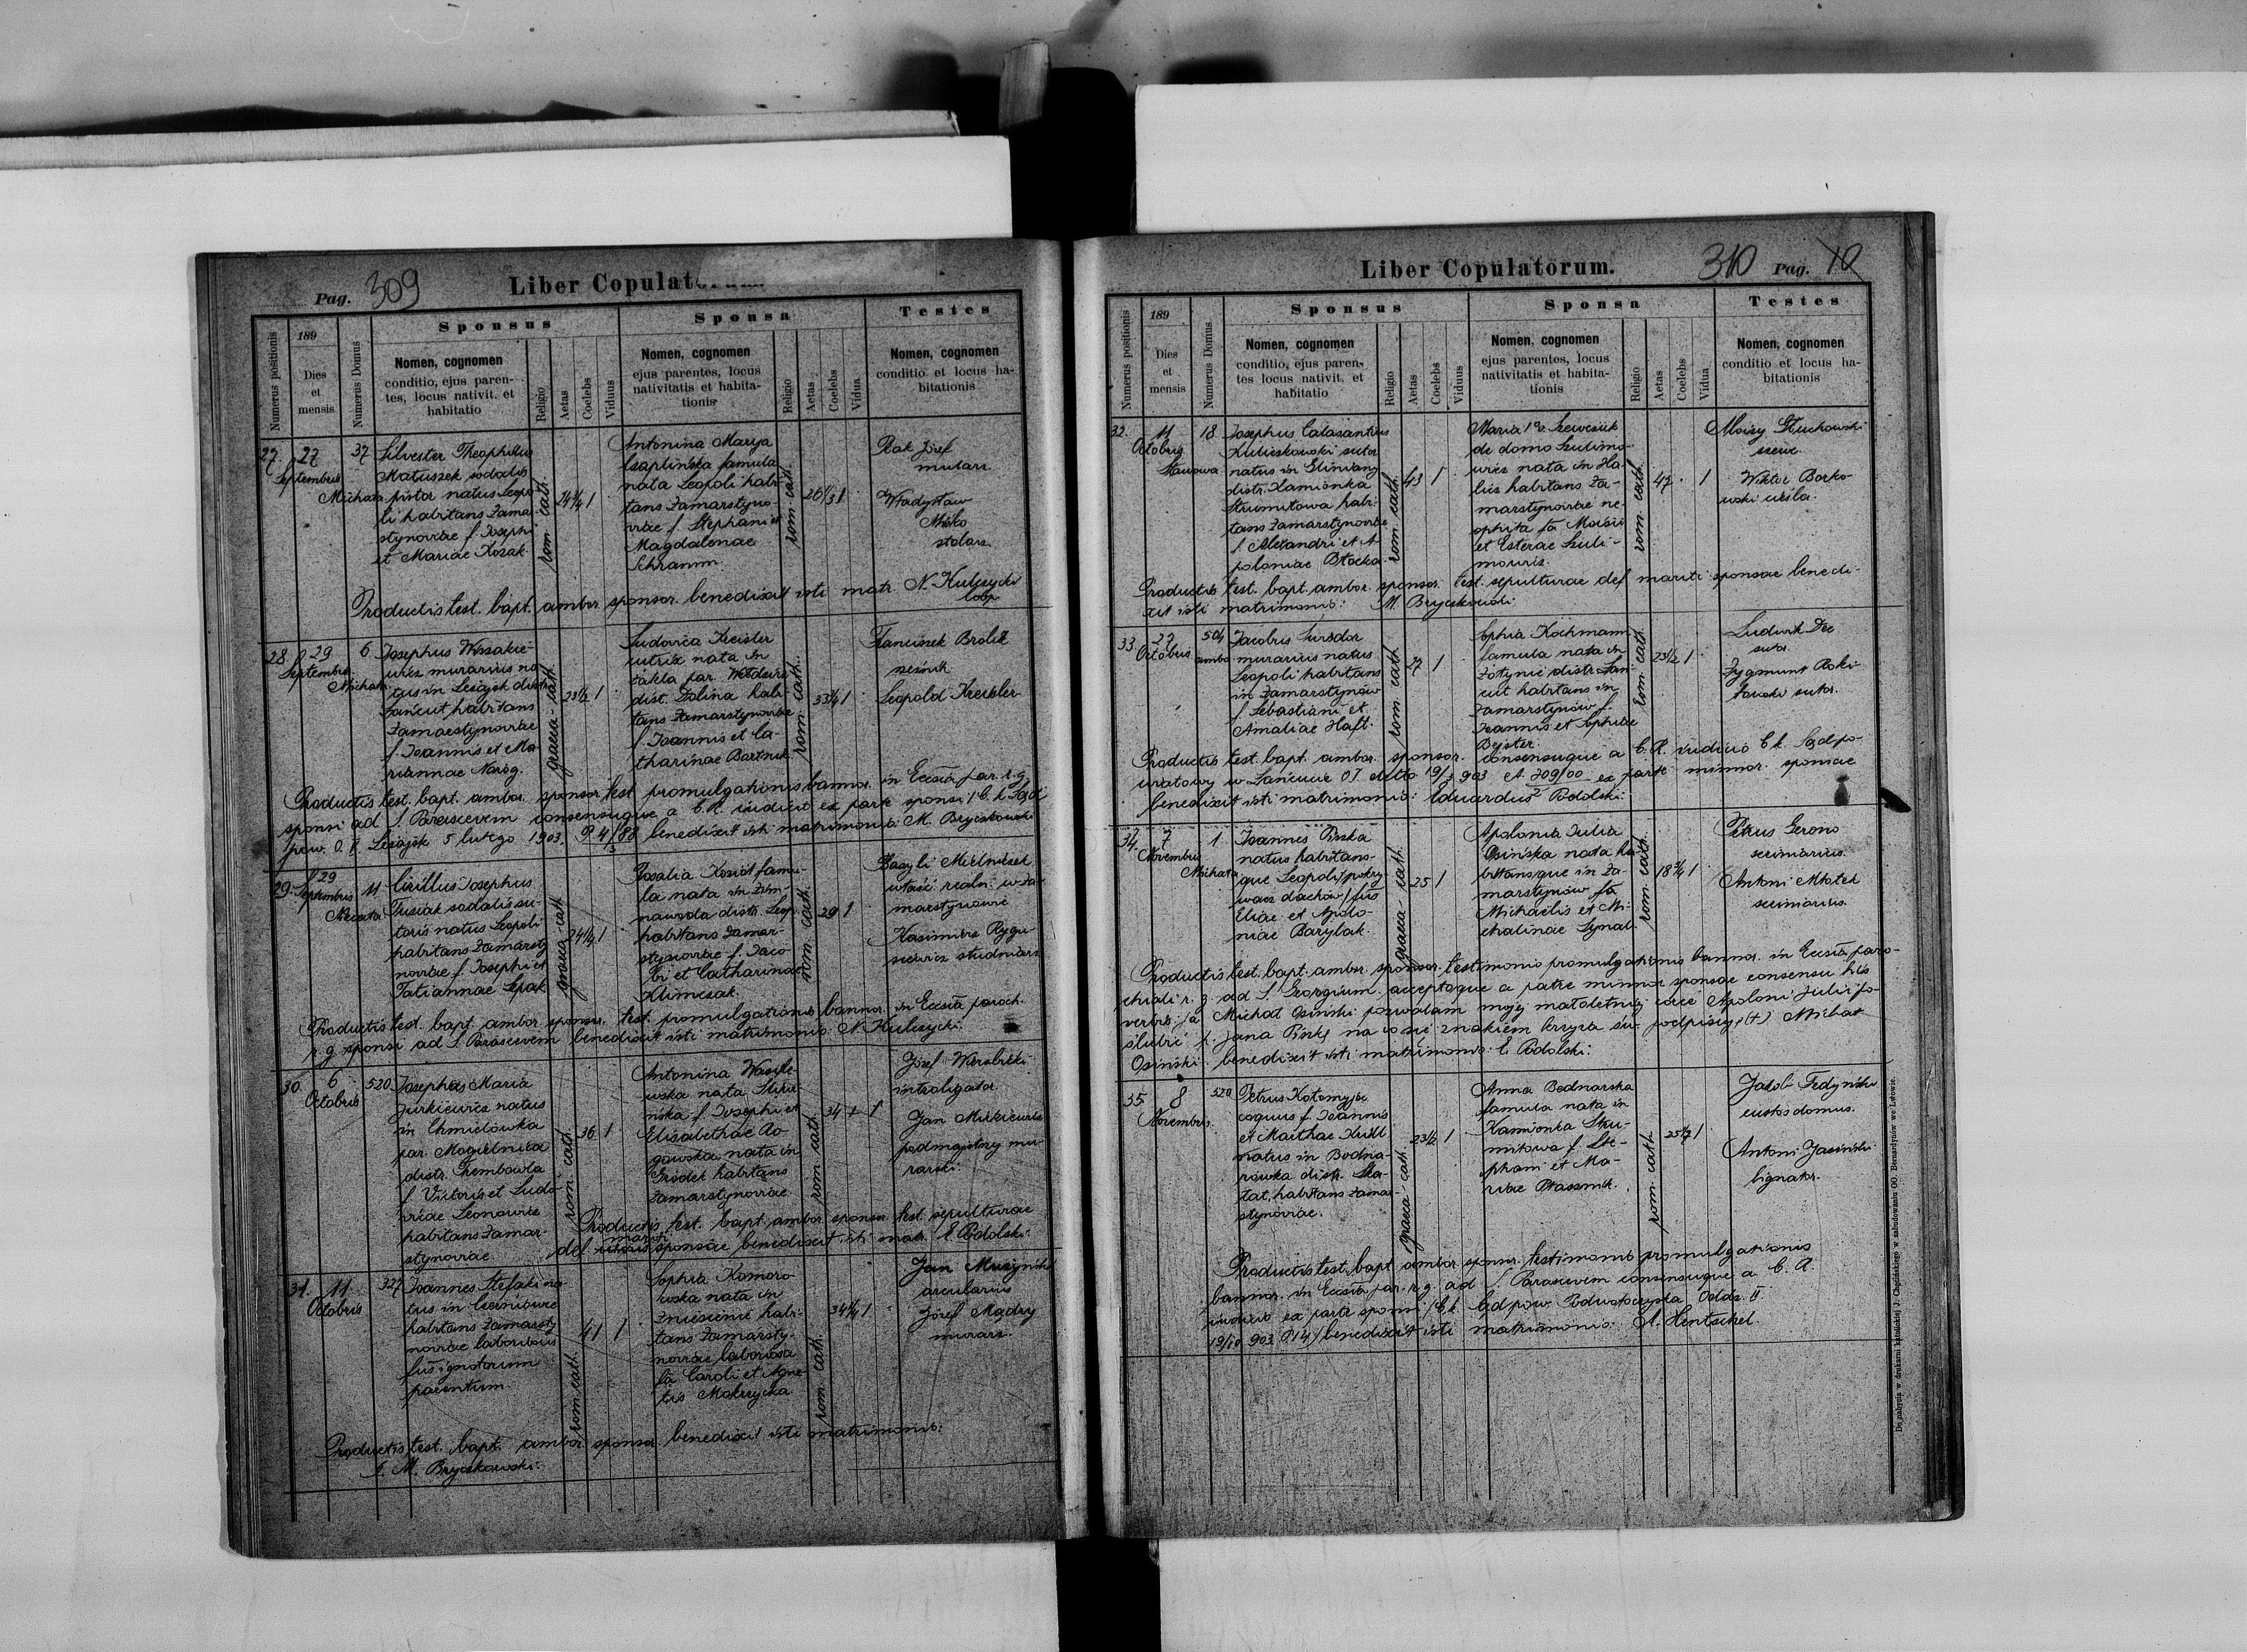 Pag. 309
Liber Copulatorum.
Numerus positionis
189
Dies
et
mensis
Numerus Domus
Sponsus
Nomen, cognomen
conditio, ejus paren-
tes, locus nativit. et
habitatio
Religio
Aetas
Coelebs
Viduus
Sponsa
Nomen, cognomen
ejus parentes, locus
nativitatis et habita-
tionis
Religio
Aetas
Coelebs
Vidua
Testes
Nomen, cognomen
conditio et locus ha-
bitationis
27. 27
Septembris
37
Silvester Theophilus
Matuszek sodalis
pistor natus Leopo-
li habitans Zama-
stynoviae f. Josephi
et Mariae Kozak
rom. cath.
24 3/4 1
Antonina Marya
famula
nata Leopoli habi-
tans Zamarstyno-
viae f. Stephani et
Magdalenae
Schramm.
rom. cath.
26 1/3 1
Rak Józef
mularz
Władysław
stolarz
Productis test. bapt. ambor. sponsor. benedixit isti matr. N. Kulczycki
coop
28 29
Septembris
6
Josephus
murarius na-
tus in Leżajsk distr
Łańcut habitans
Zamarstynoviae
f. Joannis et Ma-
riannae Naróg.
graeca-cath.
23 1/2 1
Ludovica Kreisler
nata in
par.
dist. Dolina habi-
tans Zamarstynoviae
f. Joannis et Ca-
tharinae Bartnik
rom. cath.
33 1/4 1
Franciszek Brolik
Leopold Kreisler
Productis test. bapt. ambor. sponsor. test. promulgationis bannor. in Ecclia par. r. g.
sponsi ad S. Parascevem consensuque a C. R. iudicii ex parte sponsi / C. k. Sąd
pow. O. V. Leżajsk 5 lutego 1903. P 4/88 benedixit isti matrimonio: M. Bryczkowski
29. 29
Septembris
11
Cirillus Josephus
Tusiak sodalis su-
toris natus Leopoli
habitans Zamarsty-
noviae f. Josephi et
Tatiannae Lepak
graeca-cath.
24 1/4 1
Rosalia Kozioł famu-
la nata in Zim-
nawoda distr. Leop.
habitans Zamar-
stynoviae f. Jaco-
bi et Catharinae
Klimczak.
rom. cath.
29 1
Bazyli
właść. realn. w Za-
marstynowie
Kazimierz
studniarz
Productis test. bapt. ambor. sponsor. test. promulgationis bannor. in Ecclia paroch.
r. g. sponsi ad S. Parascevem benedixit isti matrimonio: N. Kulczycki.
30. 6
Octobris
520
Josephus Maria
Jurkiewicz natus
in Chmielówka
par. Mogielnica
distr. Trembowla
f. Victoris et Ludo-
vicae Leonowicz
habitans Zamar-
stynoviae
rom. cath.
36 1
Antonina
nata
f. Josephi et
Elisabethae Ro-
gowska nata in
Gródek habitans
Zamarstynoviae
rom. cath.
34 1
Józef
introligator
Jan
podmajstrzy mu-
rarski.
Productis test. bapt. ambor. sponsor. test. sepulturae
def. mariti sponsae benedixit isti matr. E. Podolski.
31. 11
Octobris
327
Joannes Stefaki na-
tus in
habitans Zamarsty-
noviae laboriosus
fius ignotorum
parentum.
rom. cath.
41 1
Sophia Komoro-
wska nata in
Zniesienie habi-
tans Zamarsty-
noviae laboriosa
fa Caroli et Agne-
tis Mokrzycka
rom. cath.
34 3/4 1
Jan Muszyński
arcularius
Józef Mądry
murarz.
Productis test. bapt. ambor. sponsor. benedixit isti matrimonio:
M. Bryczkowski.
Liber Copulatorum.
310 Pag. 10
Numerus positionis
189
Dies
et
mensis
Numerus Domus
Sponsus
Nomen, cognomen
conditio, ejus paren-
tes locus nativit. et
habitatio
Religio
Aetas
Coelebs
Viduus
Sponsa
Nomen, cognomen
ejus parentes, locus
nativitatis et habita-
tionis
Religio
Aetas
Coelebs
Vidua
Testes
Nomen, cognomen
conditio et locus ha-
bitationis
32. 11
Octobris
18
Josephus Calasantius
sutor
natus in
distr. Kamionka
Strumiłowa habi-
tans Zamarstynoviae
f. Alexandri et A-
poloniae Błocka
rom. cath.
43 1
Maria 1° v. Szewczuk
de domo Szulimo-
wicz nata in Ha-
licz habitans Za-
marstynoviae ne-
ophita fa Moisii
et Esterae Szuli-
mowicz.
rom. cath.
47 1
Moizy Głuchowski
szewc
Wiktor Borko-
wski
Productis test. bapt. ambor. sponsor. test. sepulturae def. mariti sponsae benedi-
xit isti matrimonio: M. Bryczkowski
33. 27
Octobris
504
ambo
Jacobus
murarius natus
Leopoli habitans
in Zamarstynów
f. Sebastiani et
Amaliae Haft.
rom. cath.
27 1
Sophia Kochmann
famula nata in
Żołynie distr. Łań-
cut habitans in
Zamarstynów f.
Joannis et Sophiae
Bejster.
rom. cath.
23 1/2 1
Ludwik Dec
sutor
Zygmunt Roki-
towski sutor.
Productis test. bapt. ambor. sponsor. consensuque a C. R. iudicio C. k. Sąd po-
wiatowy w Łańcucie O I ddto 19/3 903 A 209/00 ex parte minor. sponsae
benedixit isti matrimonio: Eduardus Podolski.
34. 7
Novembris
1
Joannes Pirska
natus habitans-
que Leopoli / pokry-
wacz dachów / fius
Eliae et Apolo-
niae Barylak.
graeca-cath.
25 1
Apolonia Julia
Osińska nata ha-
bitansque in Za-
marstynów fa
Michaelis et Mi-
chalinae Synal-
rom. cath.
18 3/4 1
Petrus Gerono
scriniarius
Antoni Młotek
scriniarius.
Productis test. bapt. ambor. sponsor. testimonio promulgationis bannor. in Ecclia paro-
chiali r. g. ad S. Georgium acceptoque a patre minor. sponsae consensu his
verbis: Ja Michał Osiński pozwalam mojej małoletniej córce Apoloni Julii po-
ślubić p. Jana Pirskę na co się znakiem krzyża św. podpisuję (+) Michał
Osiński. benedixit isti matrimonio: E. Podolski.
35. 8
Novembris
520
Petrus Kołomyjec
coquus f. Joannis
et Marthae
natus in Bodna-
rówka distr. Ska-
łat, habitans Zamar-
stynoviae.
graeca-cath.
23 1/2 1
Anna Bednarska
famula nata in
Kamionka Stru-
miłowa f. Ste-
phani et Ma-
riae Ptasznik.
rom. cath.
1
Jakób Fedyński
custos domus.
Antoni Jasiński
lignator.
Productis test. bapt. ambor. sponsor. testimonio promulgationis
bannor. in Ecclia par. r. g. ad S. Parascevem consensuque a C. R.
iudicio ex parte sponsi / C. k. Sąd pow. Podwołoczyska Oddz. II
19/10 903 P 14/ benedixit isti matrimonio: A. Hentschel.
Do nabycia w drukarni katolickiej J. Chęcińskiego w zabudowaniu OO. Bernardynów we Lwowie.